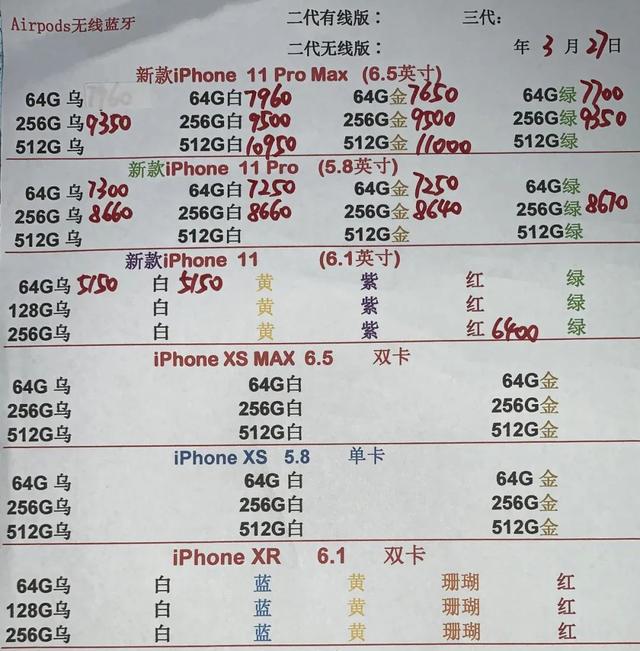 Airpods无线蓝牙 二代有线版： 三代：
二代无线版： 年 3 月 27 日
新款iPhone 11 Pro Max (6.5英寸)
64G 乌 7960 64G白 7960 64G金 7650 64G绿 7700
256G 乌 9350 256G白 9500 256G金 9500 256G绿 9350
512G 乌 512G白 10950 512G金 11000 512G绿
新款iPhone 11 Pro (5.8英寸)
64G 乌 7300 64G白 7250 64G金 7250 64G绿
256G 乌 8660 256G白 8660 256G金 8640 256G绿 8670
512G 乌 512G白 512G金 512G绿
新款iPhone 11 (6.1英寸)
64G乌 5150 白 5150 黄 紫 红 绿
128G乌 白 黄 紫 红 绿
256G乌 白 黄 紫 红 6400 绿
iPhone XS MAX 6.5 双卡
64G 乌 64G白 64G金
256G乌 256G白 256G金
512G乌 512G白 512G金
iPhone XS 5.8 单卡
64G 乌 64G 白 64G 金
256G乌 256G白 256G金
512G乌 512G白 512G金
iPhone XR 6.1 双卡
64G乌 白 蓝 黄 珊瑚 红
128G乌 白 蓝 黄 珊瑚 红
256G乌 白 蓝 黄 珊瑚 红